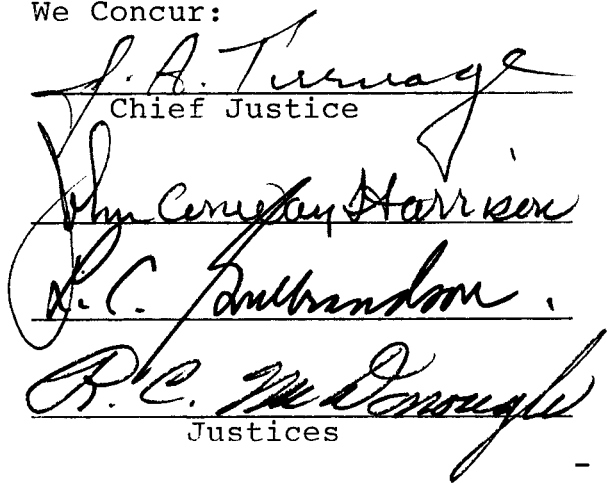 We Concur:
J. A. Turnage
Chief Justice
John Conway Harrison
L. C. Gulbrandson.
R. C. McDonough
Justices